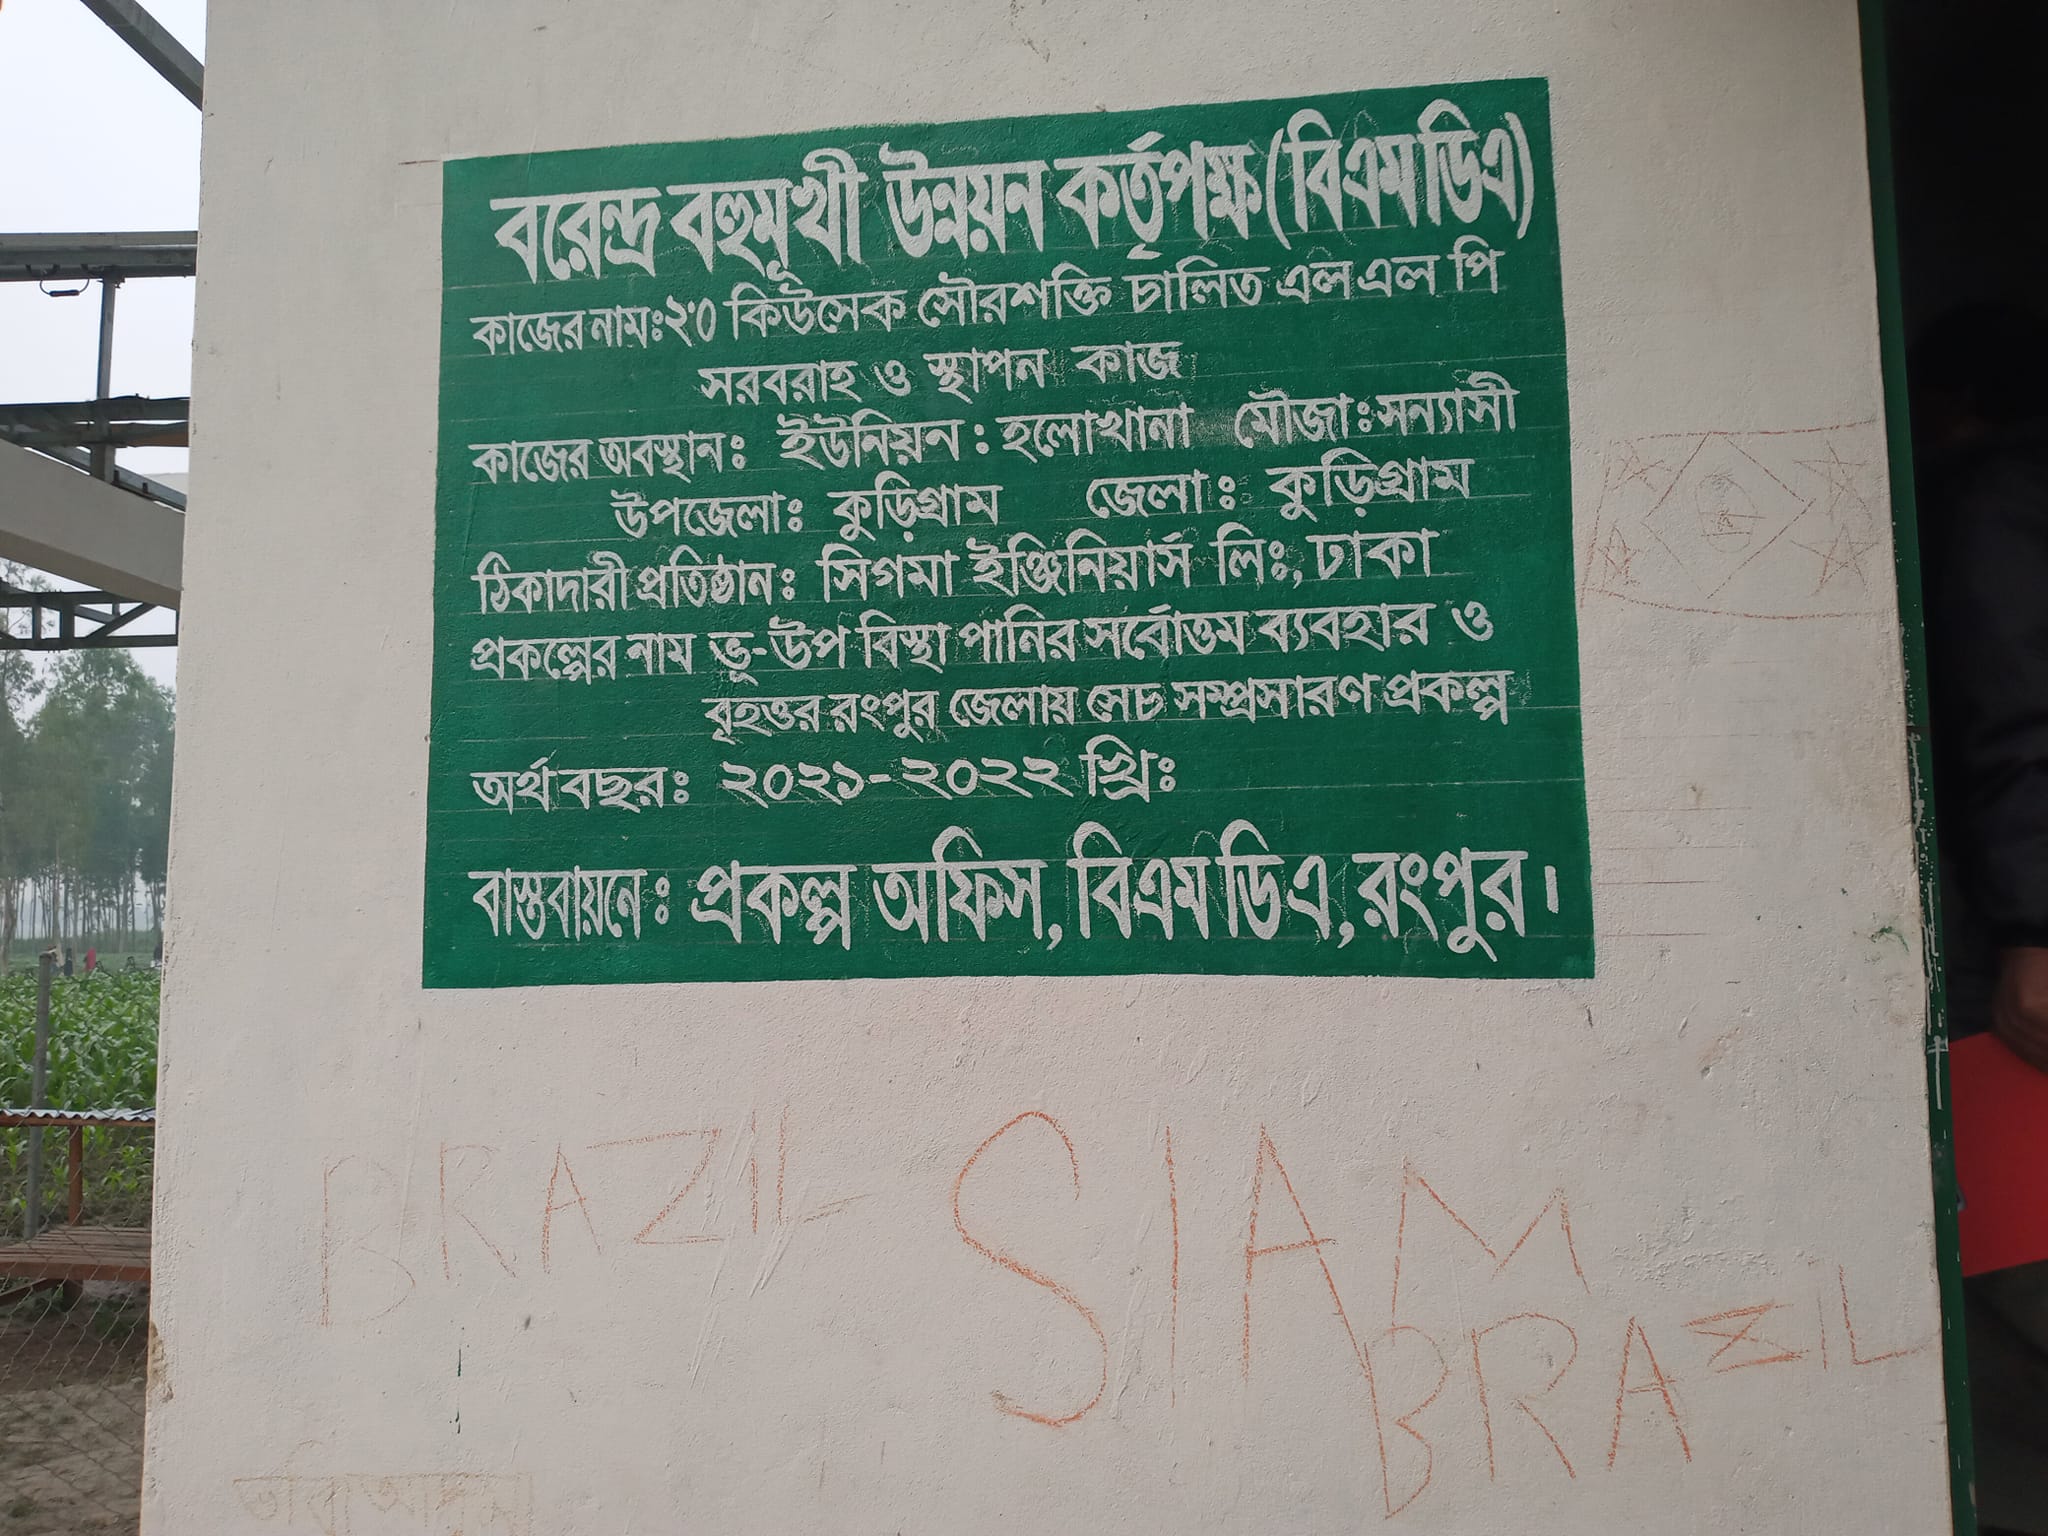 বরেন্দ্র বহুমূখী উন্নয়ন কর্তৃপক্ষ (বিএমডিএ)
কাজের নামঃ ২.০ কিউসেক সৌরশক্তি চালিত এল এল পি
সরবরাহ ও স্থাপন কাজ
কাজের অবস্থানঃ ইউনিয়ন : হলোখানা মৌজাঃ সন্যাসী
উপজেলাঃ কুড়িগ্রাম জেলাঃ কুড়িগ্রাম
ঠিকাদারী প্রতিষ্ঠানঃ সিগমা ইঞ্জিনিয়ার্স লিঃ, ঢাকা
প্রকল্পের নাম ভূ-উপ বিস্থা পানির সর্বোত্তম ব্যবহার ও
বৃহত্তর রংপুর জেলায় সেচ সম্প্রসারণ প্রকল্প
অর্থ বছরঃ ২০২১-২০২২ খ্রিঃ
বাস্তবায়নেঃ প্রকল্প অফিস, বিএমডিএ, রংপুর।
BRAZIL
SIAM
BRAZIL